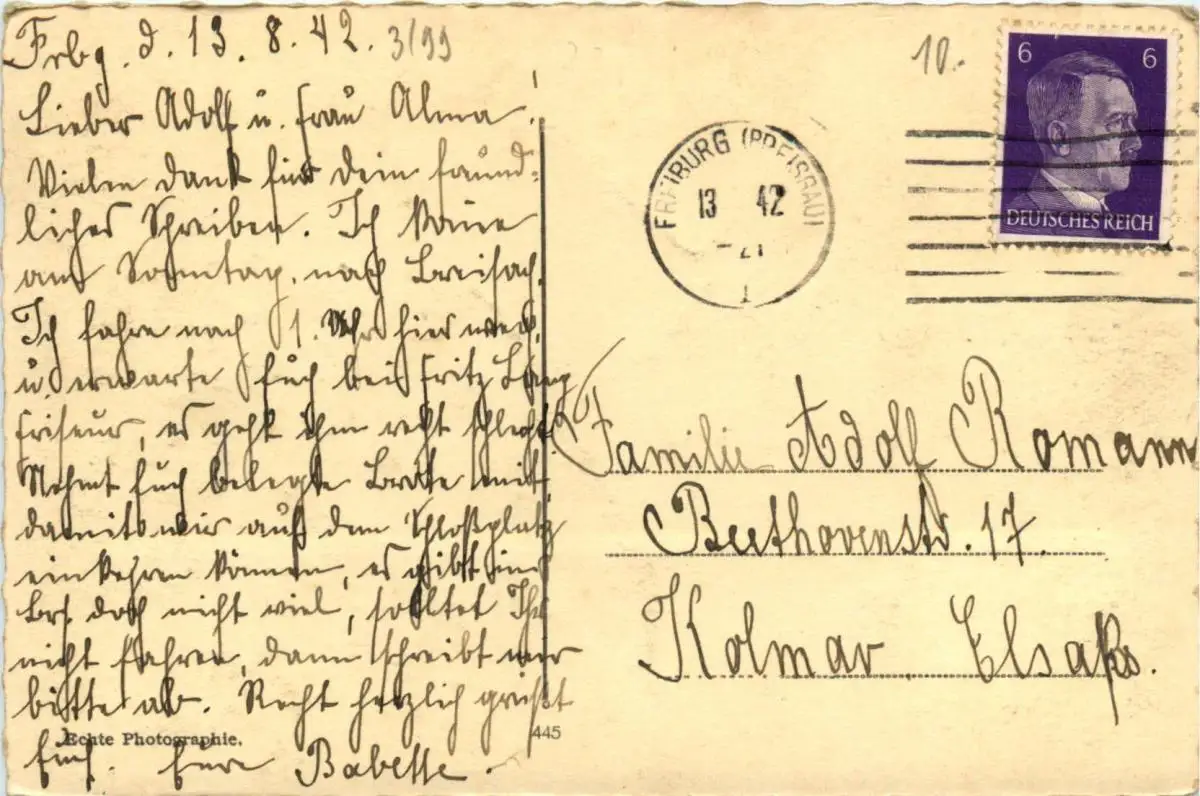 Frbg. d. 13. 8. 42. 3/99
Lieber Adolf u. Frau Alma!
Vielen Dank für Dein freund-
liches Schreiben. Ich käme
am Sonntag, nach Breisach.
Ich fahre nach 1. Uhr hier weg,
u. erwarte Euch bei Fritz Lang
Friseur, es geht ihm recht schlecht.
Nehmt Euch belegte Brote mit,
damit wir auf dem Schloßplatz
einkehren können, es gibt in
Brs. doch nicht viel, solltet Ihr
nicht fahren, dann schreibt mir
bitte ab. Recht herzlich grüßt
Euch. Eure Babette.
Echte Photographie.
445
10.-
6 6
DEUTSCHES REICH
FREIBURG (BREISGAU)
13 42
-21
1
Familie Adolf Romann
Beethovenstr. 17.
Kolmar, Elsaß.